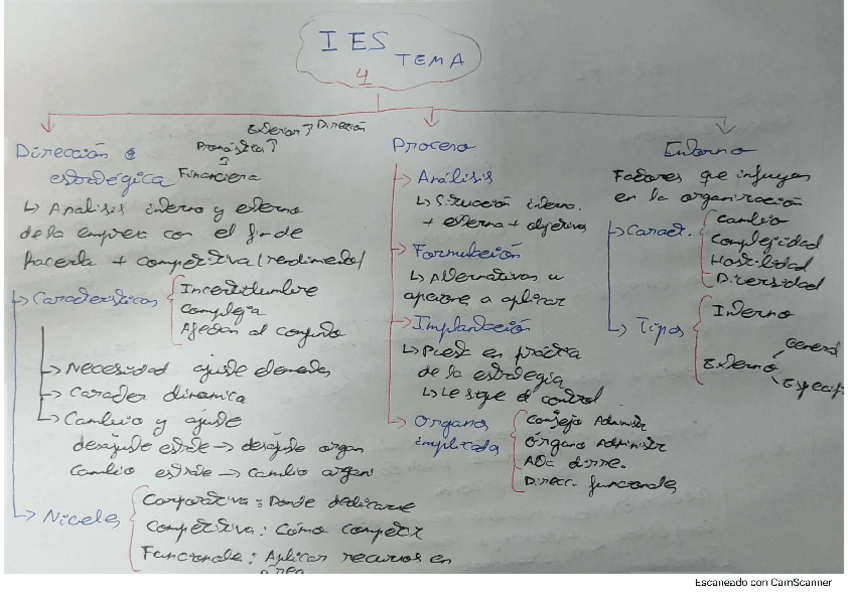 IES TEMA
4
Dirección
estratégica
Financiera
↳ Análisis interno y externo
de la empresa con el fin de
hacerla + competitiva (rendimiento)
→ Características
Incertidumbre
Compleja
Afectan al conjunto
→ Necesidad ajuste elementos
→ Carácter dinamica
→ Cambio y ajuste
desajuste estrate → desajuste organ
Cambio estrate → cambio organi
→ Niveles
Corporativa: Donde dedicarse
Competitiva: Cómo competir
Funcionale: Aplicar recursos en
área
Proceso
→ Análisis
↳ Situación interna
+ externa + objetivos
→ Formulación
↳ Alternativas u
opcione a aplicar
→ Implantación
↳ Puest en práctica
de la estrategia
↳ Le sigue el control
→ Organos
implicados
Consejo Administr
Órgano Administr
Direcc. funcionales
Entorno
Factores que influyen
en la organización
→ Caract.
Cambio
Complejidad
Hostilidad
Diversidad
→ Tipos
Interno
Externo
General
Específi
Escaneado con CamScanner